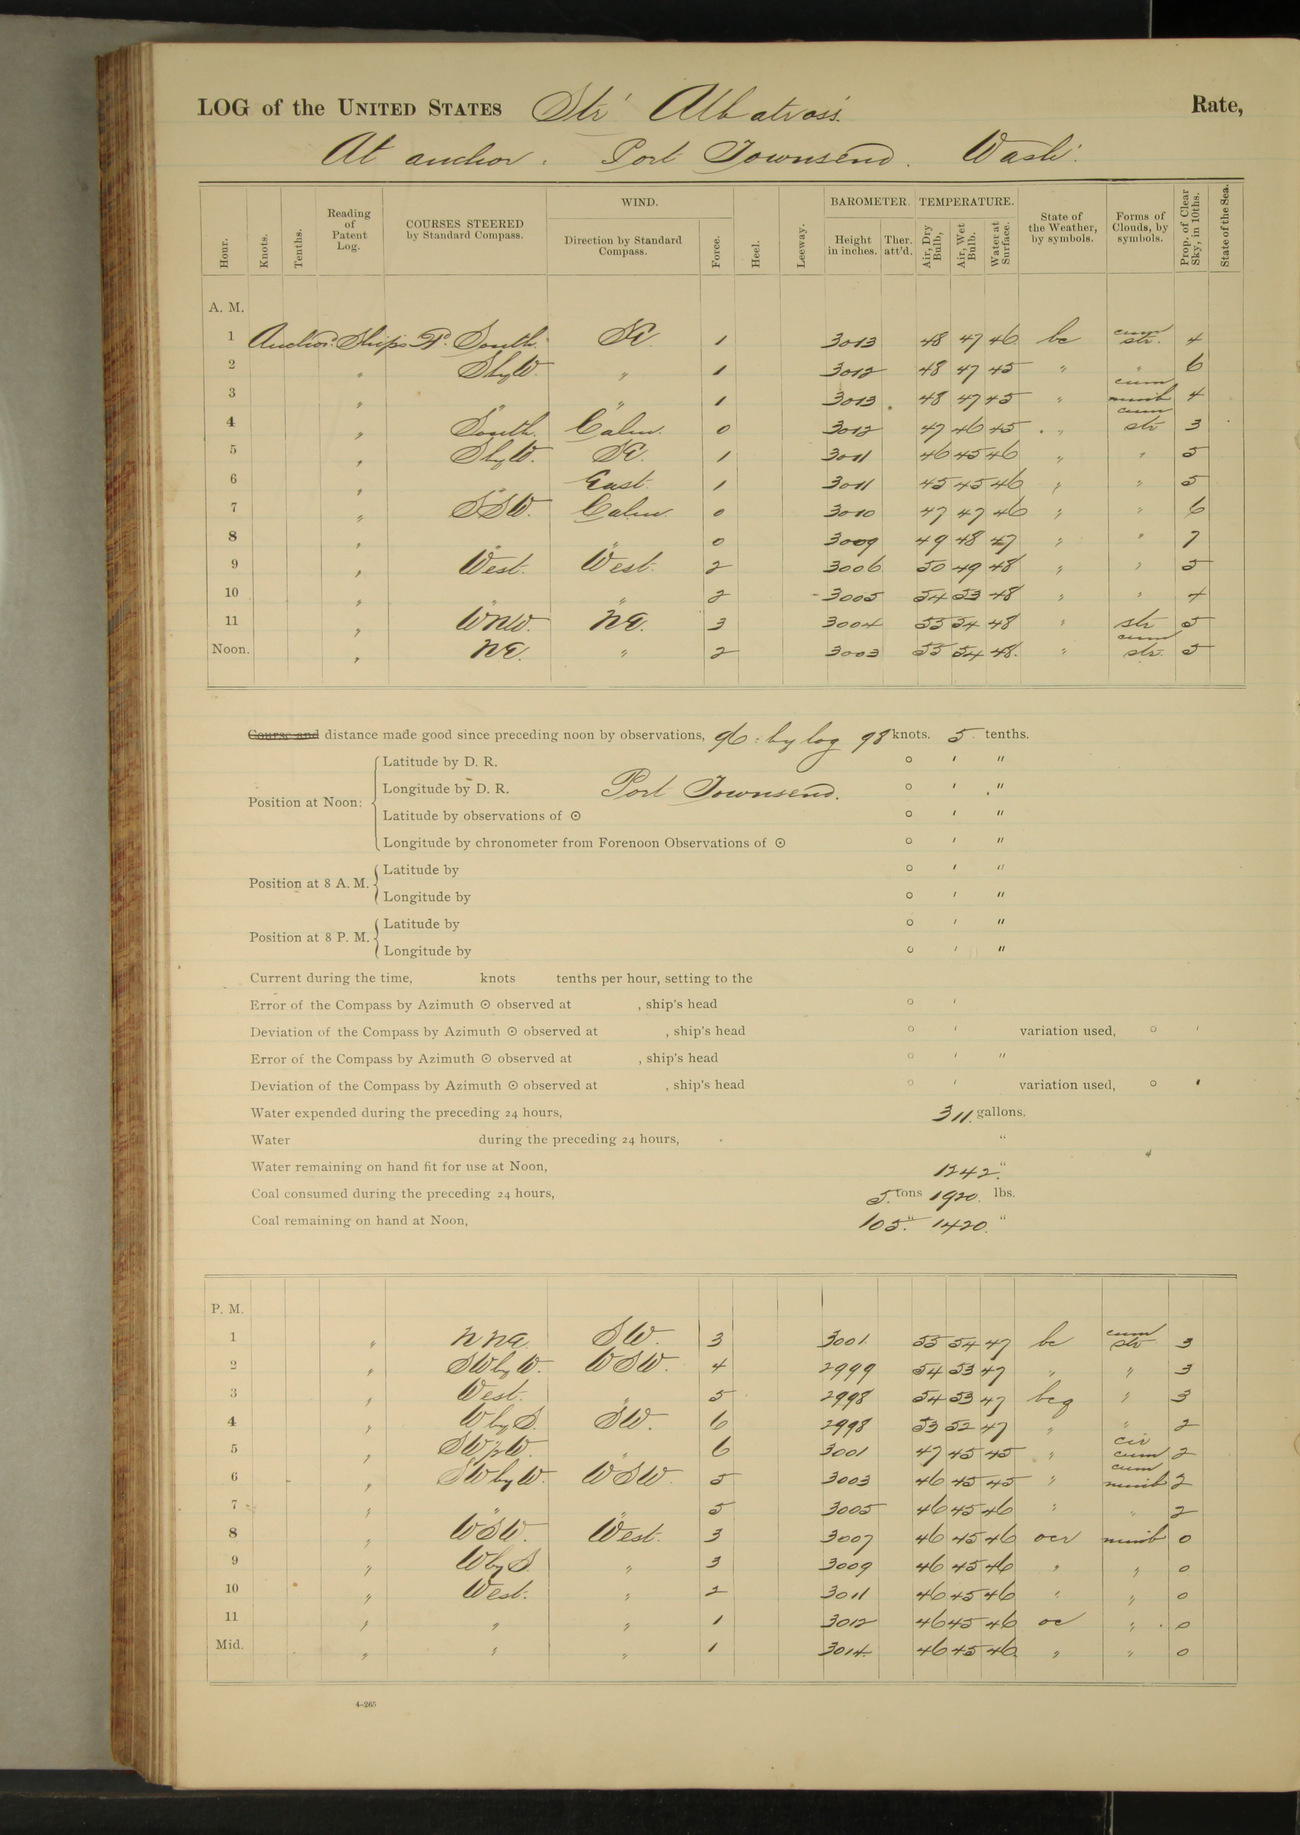 LOG of the UNITED STATES Str' Albatross. Rate,
At anchor. Port Townsend. Wash.
Hour. Knots. Tenths. Reading of Patent Log. COURSES STEERED by Standard Compass. WIND. Direction by Standard Compass. Force. Heel. Leeway. BAROMETER. Height in inches. Ther. att'd. TEMPERATURE. Air, Dry Bulb, Air, Wet Bulb. Water at Surface. State of the Weather, by symbols. Forms of Clouds, by symbols. Prop. of Clear Sky, in 10ths. State of the Sea.
A. M.
1 South. SE. 1 3013 48 47 46 bc cum str. 4
2 " SbyW. " 1 3012 48 47 45 " " 6
3 " " " 1 3013 48 47 45 " cum nimb 4
4 " South. Calm. 0 3012 47 46 45 " cum str 3
5 " SbyW. SE. 1 3011 46 45 46 " " 5
6 " " East. 1 3011 45 45 46 " " 5
7 " SSW. Calm. 0 3010 47 47 46 " " 6
8 " " " 0 3009 49 48 47 " " 7
9 " West. West. 2 3006 50 49 48 " " 5
10 " " " 2 3005 54 53 48 " " 4
11 " WNW. NE. 3 3004 55 54 48 " str 5
Noon. " NE. " 2 3003 55 54 48. " cum str. 5
Course and distance made good since preceding noon by observations, 96 : by log 98 knots. 5 tenths.
Position at Noon: Latitude by D. R. ° ' "
Longitude by D. R. Port Townsend. ° ' "
Latitude by observations of ☉ ° ' "
Longitude by chronometer from Forenoon Observations of ☉ ° ' "
Position at 8 A. M. Latitude by ° ' "
Longitude by ° ' "
Position at 8 P. M. Latitude by ° ' "
Longitude by ° ' "
Current during the time, knots tenths per hour, setting to the
Error of the Compass by Azimuth ☉ observed at , ship's head ° '
Deviation of the Compass by Azimuth ☉ observed at , ship's head ° ' variation used, ° '
Error of the Compass by Azimuth ☉ observed at , ship's head ° ' "
Deviation of the Compass by Azimuth ☉ observed at , ship's head ° ' variation used, ° '
Water expended during the preceding 24 hours, 311. gallons.
Water during the preceding 24 hours, "
Water remaining on hand fit for use at Noon, 1242. "
Coal consumed during the preceding 24 hours, 5. tons 1920. lbs.
Coal remaining on hand at Noon, 105. " 1420. "
P. M.
1 " NNE. SW. 3 3001. 55 54 47 bc cum str 3
2 " SWbyW. WSW. 4 2999 54 53 47 " " 3
3 " West. " 5 2998 54 53 47 bcq " 3
4 " WbyS. SW. 6 2998 53 52 47 " " 2
5 " " 6 3001 47 45 45 " cir cum 2
6 " SWbyW. WSW. 5 3003 46 45 45 " cum nimb 2
7 " " " 5 3005 46 45 46 " " 2
8 " WSW. West. 3 3007 46 45 46 ocr nimb 0
9 " WbyS. " 3 3009 46 45 46 " " 0
10 " West. " 2 3011 46 45 46 " " 0
11 " " " 1 3012 46 45 46 oc " 0
Mid. " " " 1 3014. 46 45 46. " " 0
4-265